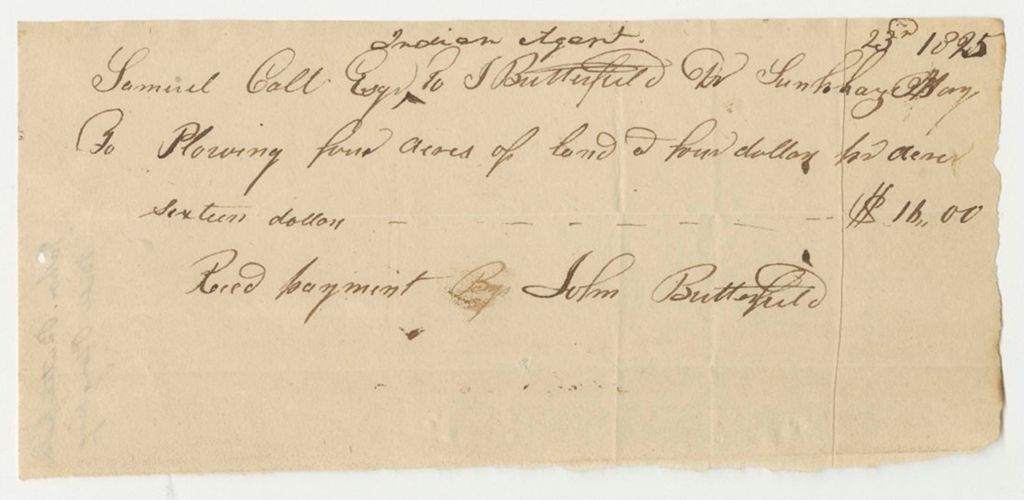 Indian Agent. 23rd 1825
Samuel Call Esqr to J Butterfield Dr Sunkhaze May
To Plowing four acres of land a four dollars pr acre
sixteen dollars — — — — — — — $ 16,,00
Recd payment By John Butterfield